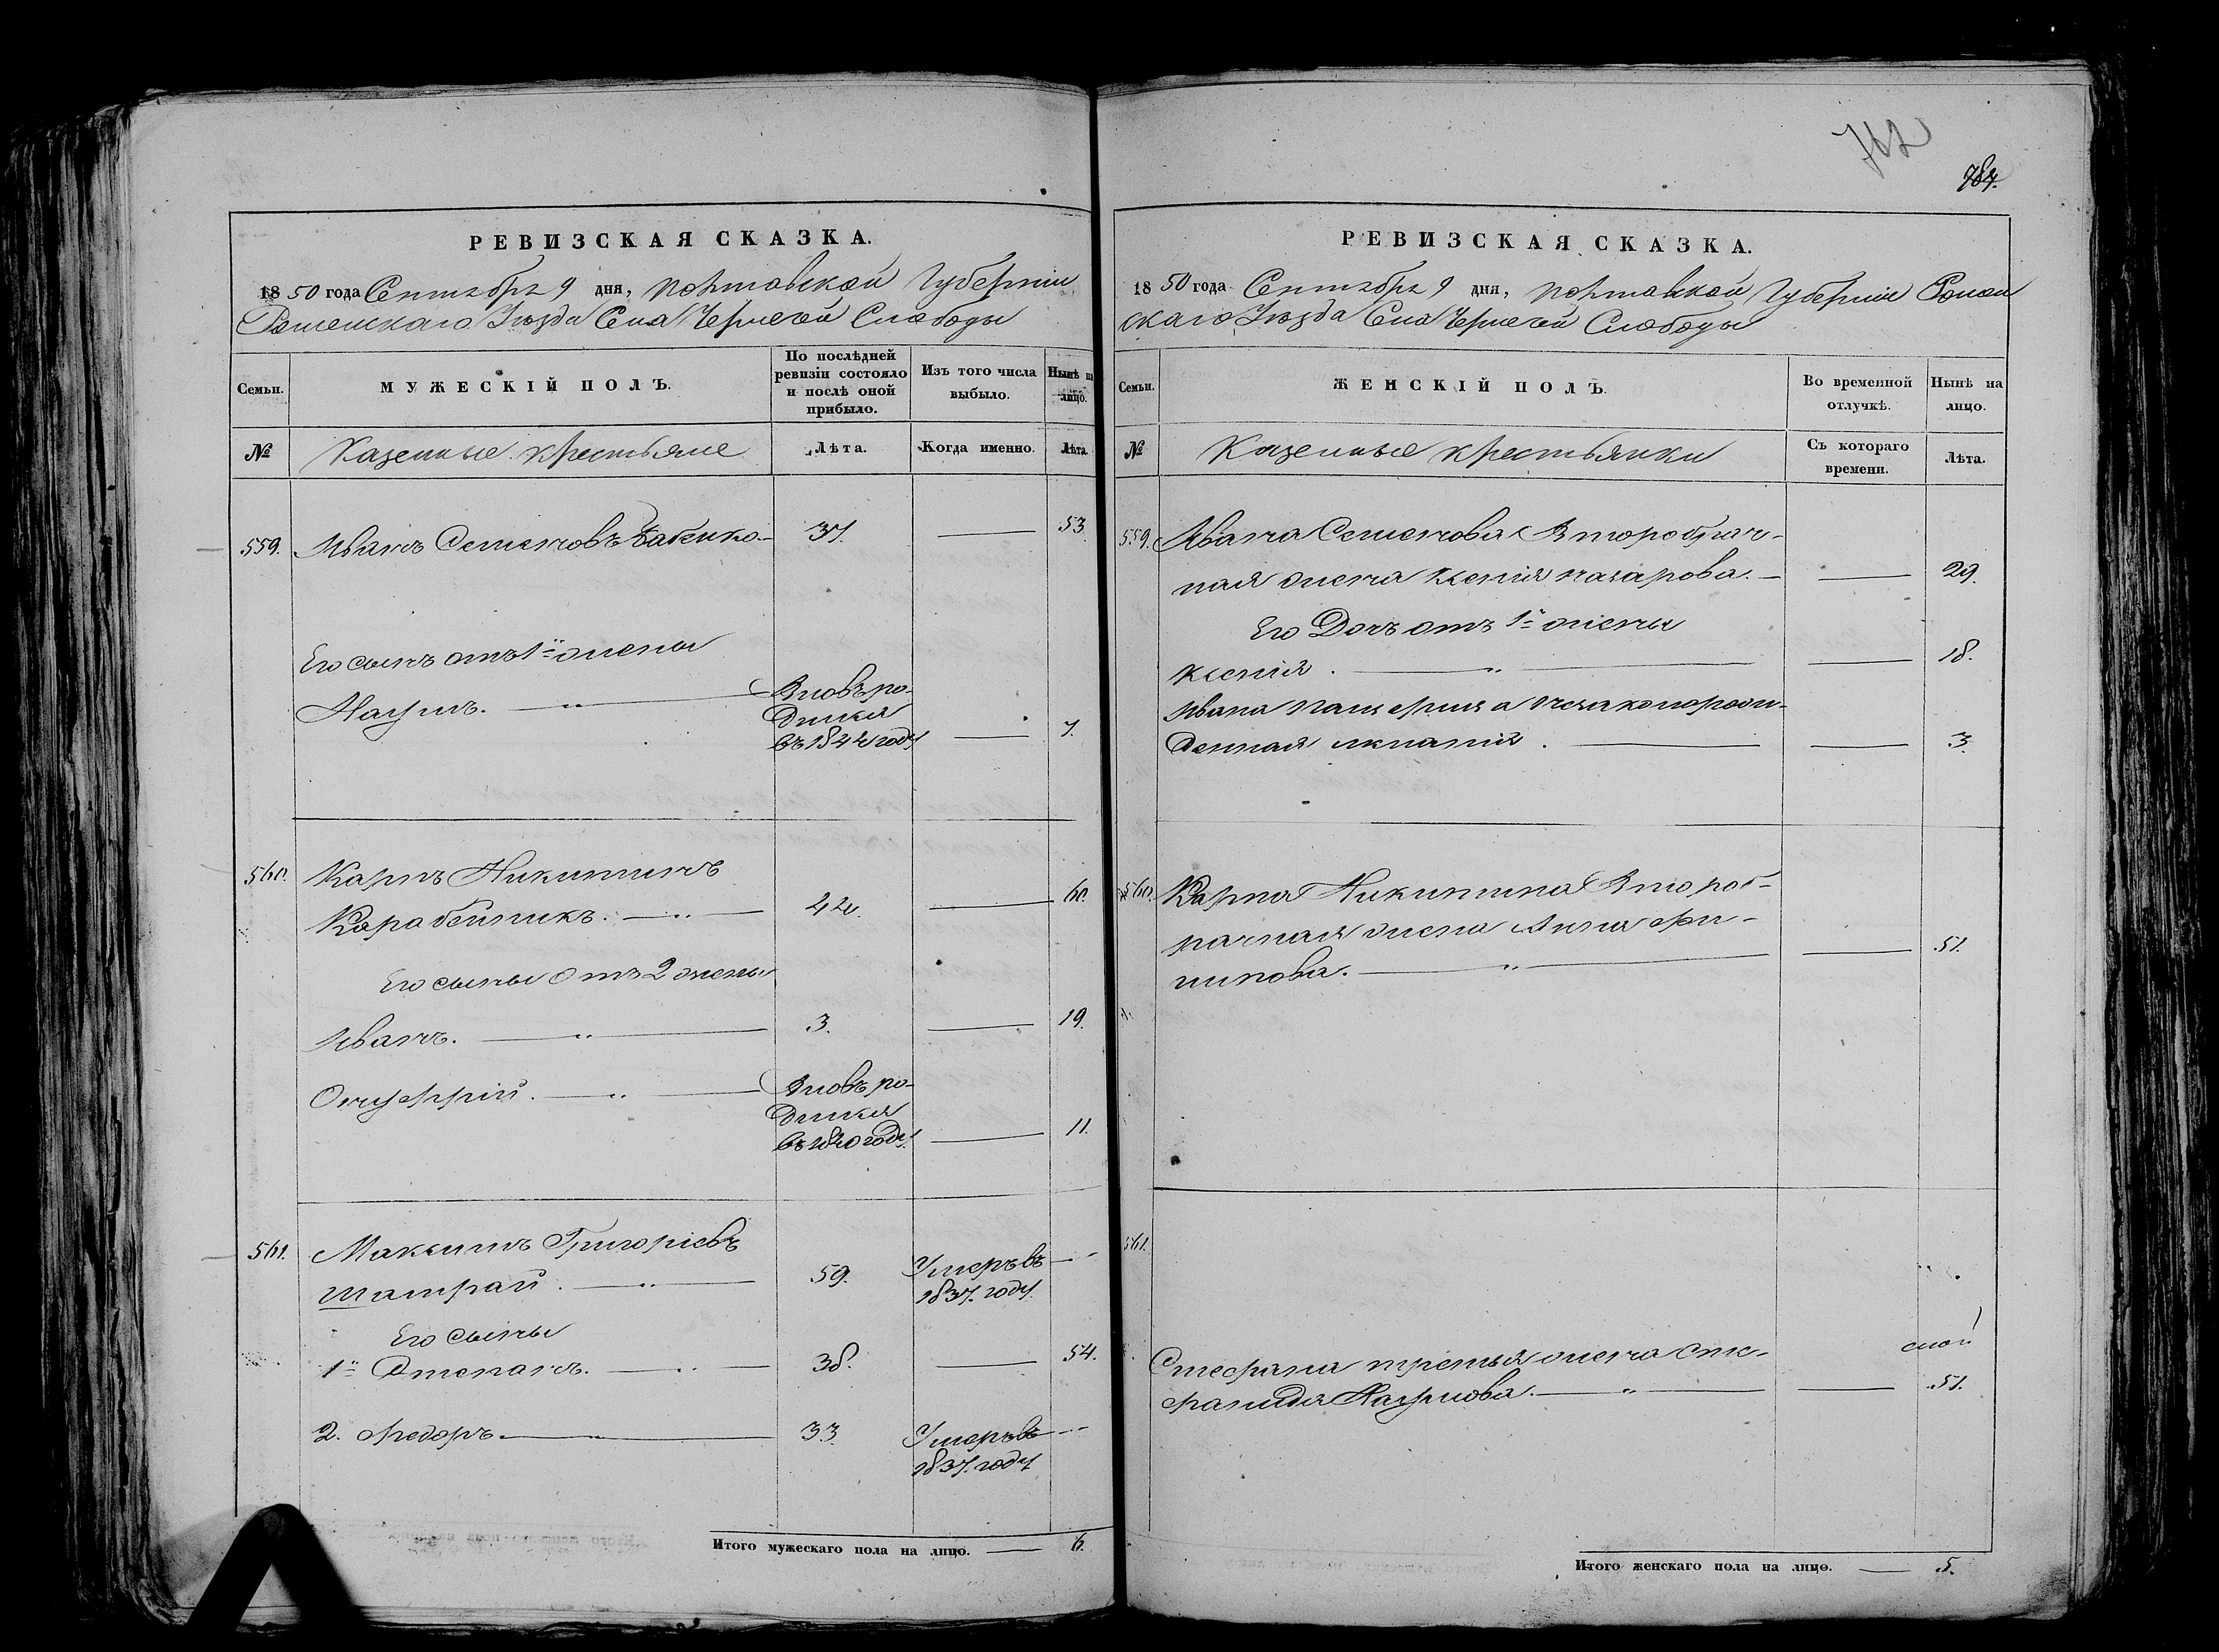 РЕВИЗСКАЯ СКАЗКА.
1850 года Сентября 9 дня, Полтавской Губернии
Роменскаго Уезда Села Чернечой Слободы
Семьи.
МУЖЕСКІЙ ПОЛЪ.
По послѣдней ревизіи состояло и послѣ оной прибыло.
Изъ того числа выбыло.
Нынѣ на лицо.
№
Казенные крестьяне
Лѣта.
Когда именно.
Лѣта.
559. Иванъ Семеновъ 37. 53.
Его сынъ отъ 1й жены
Наумъ. Вновь ро-
дился
въ 1844 году 7.
560. Карпъ Никитинъ
Карабейникъ. 44. 60.
Его сыны отъ 2 жены
Иванъ. 3. 19.
Онуфрій. Вновь ро-
дился
въ 1840 году 11.
561. Максимъ Григорьевъ
Шатрай. 59. Умеръ въ
1837. году
Его сыны
1й Степанъ. 38. 54.
2. Федоръ. 33. Умеръ въ
1837. году
Итого мужескаго пола на лицо. 6.
784.
РЕВИЗСКАЯ СКАЗКА.
1850 года Сентября 9 дня, Полтавской Губерніи Ромен
скаго Уезда Села Чернечой Слободы
Семьи.
ЖЕНСКІЙ ПОЛЪ.
Во временной отлучкѣ.
Нынѣ на лицо.
№
Казенные крестьянки
Съ котораго времени.
Лѣта.
559. Ивана Семенова Второбрач-
ная жена Ксенія Назарова. 29.
Его Дочь отъ 1й жены
Ксенія. 18.
Ивана Незаконорож-
денная 3.
560. Карпа Никитина Второб-
рачная жена Анна Фи-
липова. 51.
561.
Стефана третья жена Сте-
фанида Наумова. 51.
Итого женскаго пола на лицо. 5.